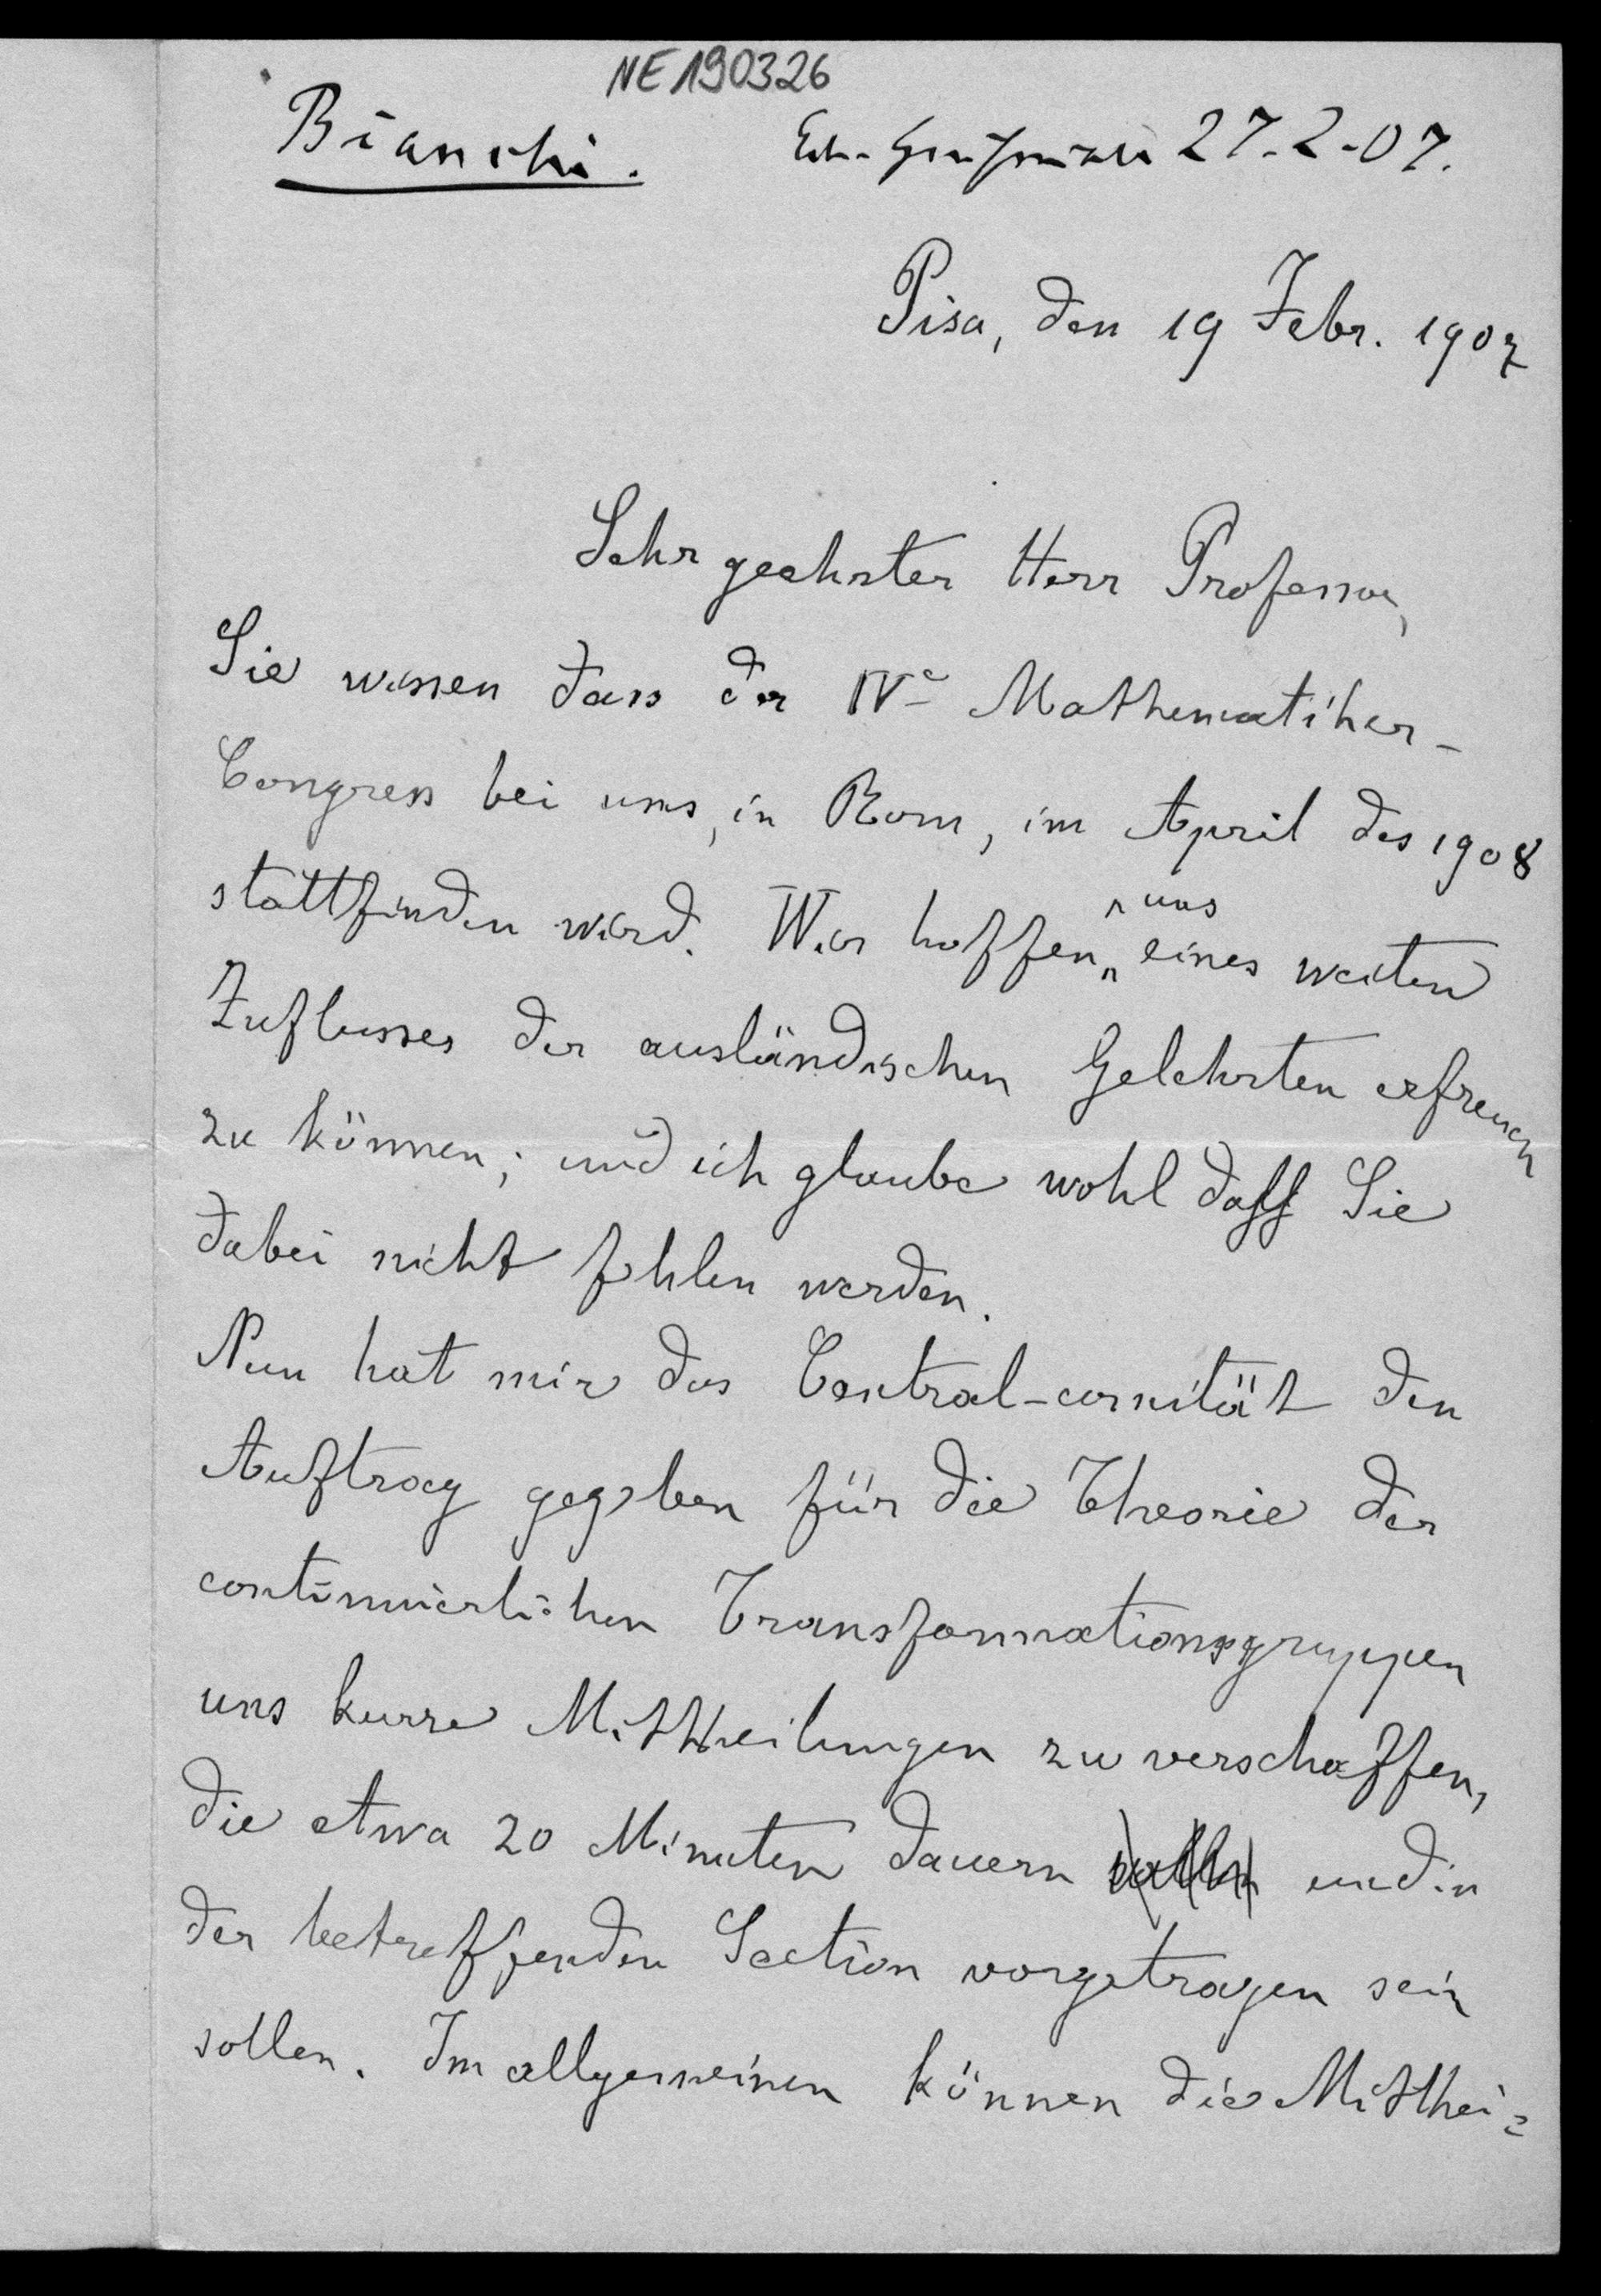 NE190326
Bianchi. 27-2-07.
Pisa, den 19 Febr. 1907
Sehr geehrter Herr Professor,
Sie wissen dass der IVe Mathematiker-
Congress bei uns, in Rom, im April des 1908
stattfinden wird. Wir hoffen uns eines weiten
Zuflusses der ausländischen Gelehrten erfreuen
zu können; und ich glaube wohl daß Sie
dabei nicht fehlen werden.
Nun hat mir das Central-comität den
Auftrag gegeben für die Theorie der
continuierlichen Transformationsgruppen
uns kurze Mittheilungen zu verschaffen,
die etwa 20 Minuten dauern und in
der betreffenden Section vorgetragen sein
sollen. Im allgemeinen können die Mitthei=